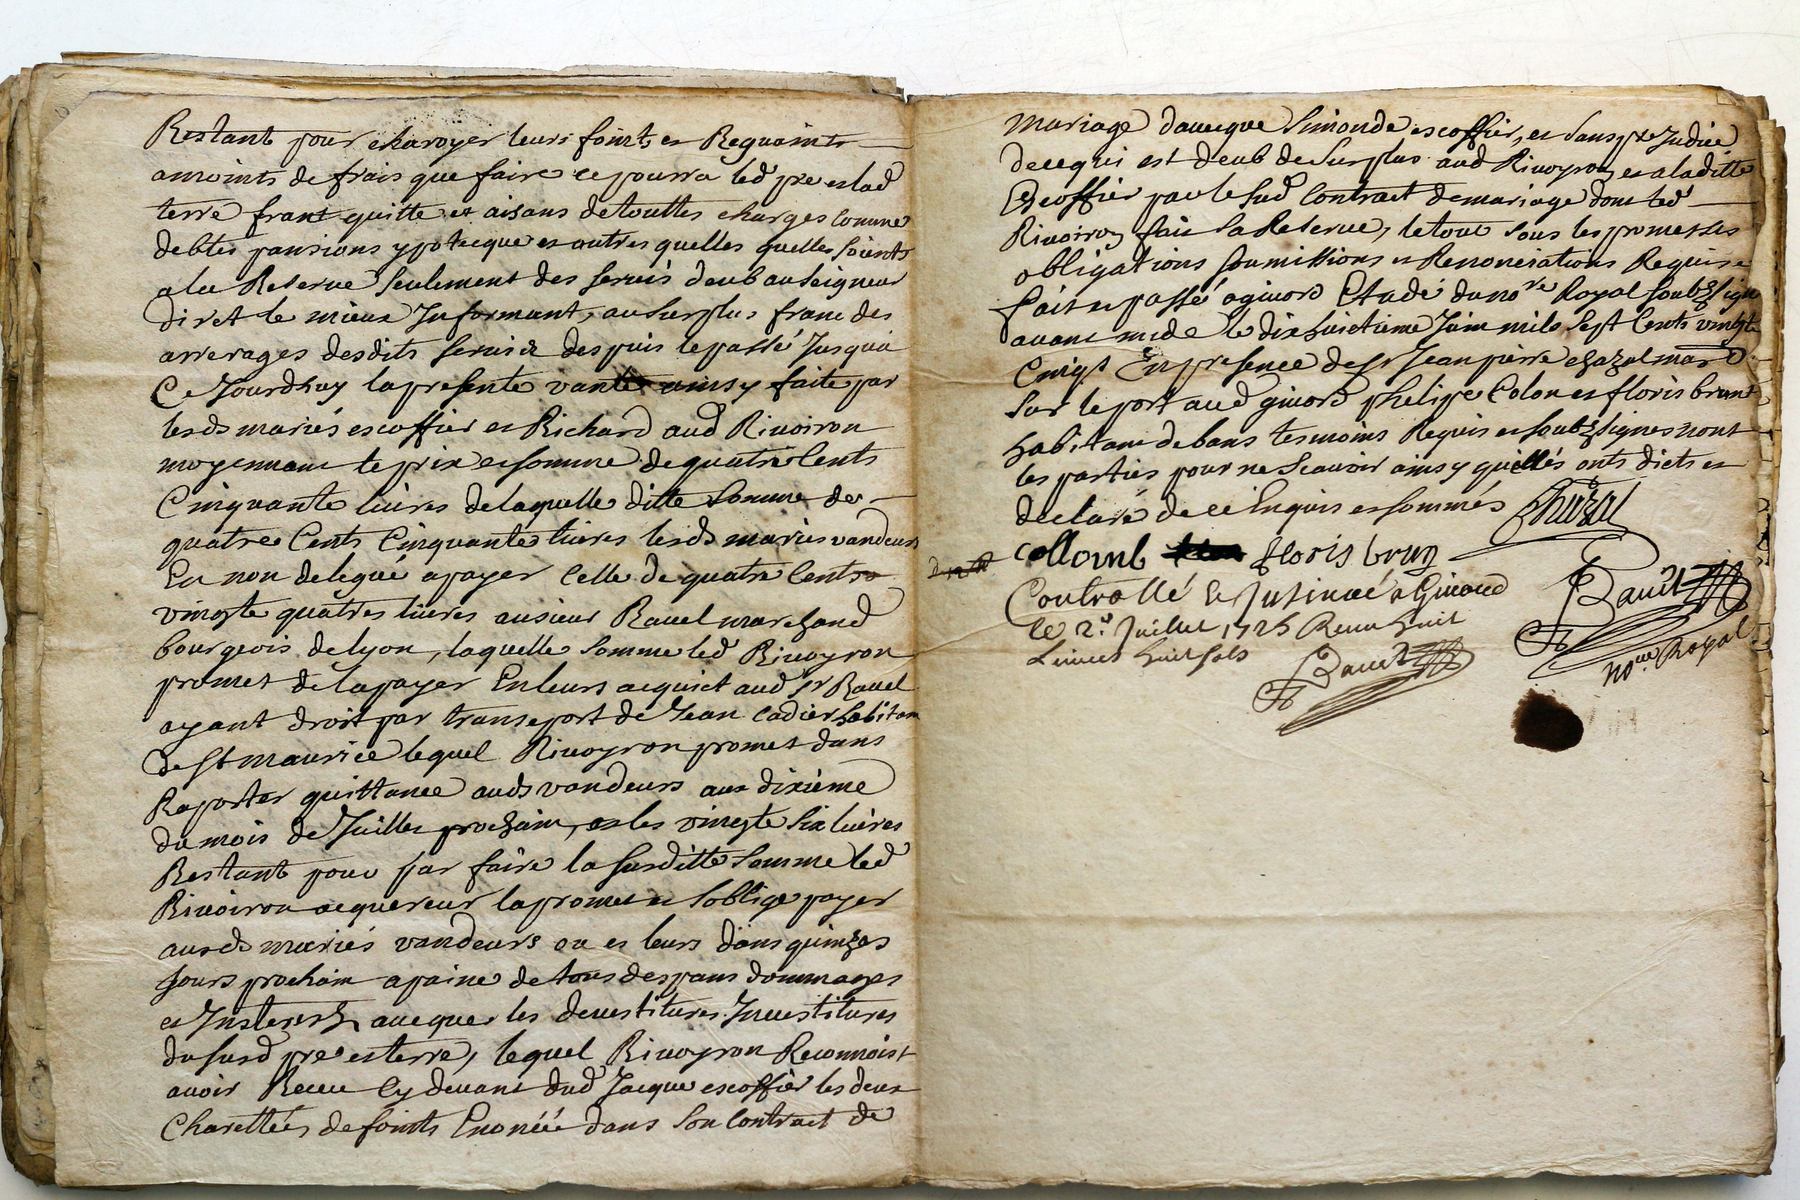 Restant pour charoyer leurs foints et Reguaints
a moints de frais que faire ce pourra led pre et lad
terre frant quitte et aisans de touttes charges comme
debtes pansions ypotecque et autres quelles quelles soients
a la Reserve seulement des servis deub au seigneur
diret le mieux Informant, au surplus franc des
arrerages desdits servis despuis le passé Jusqua
Ce Jourdhuy la presente vante ainsy faite par
lesds mariés escoffier et Richard aud Rivoiron
moyennant le prix et somme de quatre Cents
Cinquante livres de laquelle ditte somme de
quatre Cents Cinquante livres lesds mariés vandeurs
En non delegué a payer celle de quatre Cents
vingte quatres livres au sieur Ravel marchand
bourgeois de lyon, laquelle somme led Rivoyron
promet de la payer En leurs acquict aud sr Ravel
ayant droit par transport de Jean Cadier habitant
de st maurice lequel Rivoyron promet dans
Raporter quittance auds vandeurs aux dixième
du mois de Juillet prochain, et les vingte six livres
Restant pour par faire la susditte somme led
Rivoiron acquereur la promet et soblige payer
ausds mariés vandeurs ou es leurs dans quinzes
Jours prochain a paine de tous despans dommages
et Insterest avecques les devestitures Investitures
du susd pre et terre, lequel Rivoyron Reconnoist
avoir Receu Cy devant dud Jacque escoffier les deux
Charettées de foints Enoncée dans son Contract de
mariage davecque Simonde escoffier, et sans preJudice
de ce qui est deub de surplus aud Rivoyron et a laditte
Escoffier par le sud Contract de mariage dont led
Rivoiron fait sa Reserve, le tout sous les promesses
obligations soumissions et Renonciations Requise
fait et passé a givord Etude du nore Royal soubzsigne
avant midé le dix huictieme Juin mile sept Cents vingte
Cinqt En presence de sr Jean pierre chazal mard
sur le port aud givord philipe Colon et floris brunt
habitant de bans tesmoins Requis et soubzsignes nont
les parties pour ne scavoir ainsy quillés onts dicts et
declaré de ce Enquis et sommés
Chazal
collomb floris brun
Controllé et Insinué a Givord
le 2d Juillet 1725 Receu huit
Livres huit sols
Baudt
Baudt
nore Royal